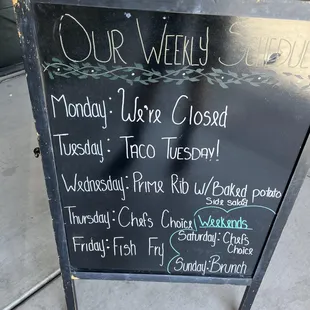 Our Weekly Schedule
Monday: We're Closed
Tuesday: Taco Tuesday!
Wednesday: Prime Rib w/Baked potato
Side salad
Thursday: Chefs Choice
Friday: Fish Fry
Weekends
Saturday: Chefs
Choice
Sunday: Brunch